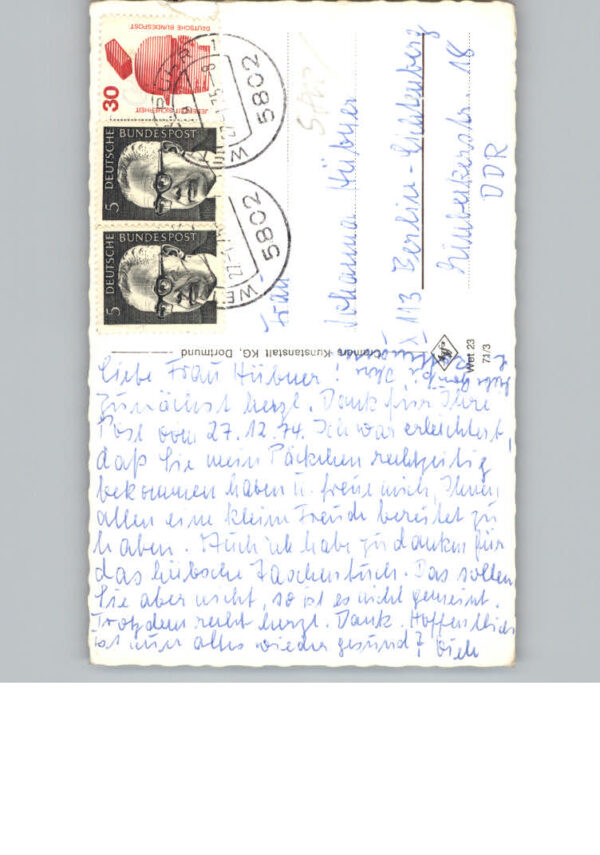 Liebe Frau Hübner!
Zunächst herzl. Dank für Ihre
Post vom 27.12.74. Ich war erleichtert,
daß Sie mein Päckchen rechtzeitig
bekommen haben u. freue mich, Ihnen
allen eine kleine Freude bereitet zu
haben. Auch ich habe zu danken für
das hübsche Taschentuch. Das sollen
Sie aber nicht, so ist es nicht gemeint.
Trotzdem recht herzl. Dank. Hoffentlich
ist nun alles wieder gesund? Viele
Frau
Johanna Hübner
X 113 Berlin-Lichtenberg
18
DDR
Cramers Kunstanstalt KG, Dortmund
Wet 23
71/3
30
DEUTSCHE BUNDESPOST
JEDERZEIT SICHERHEIT
5 DEUTSCHE BUNDESPOST
5 DEUTSCHE BUNDESPOST
5802
5802